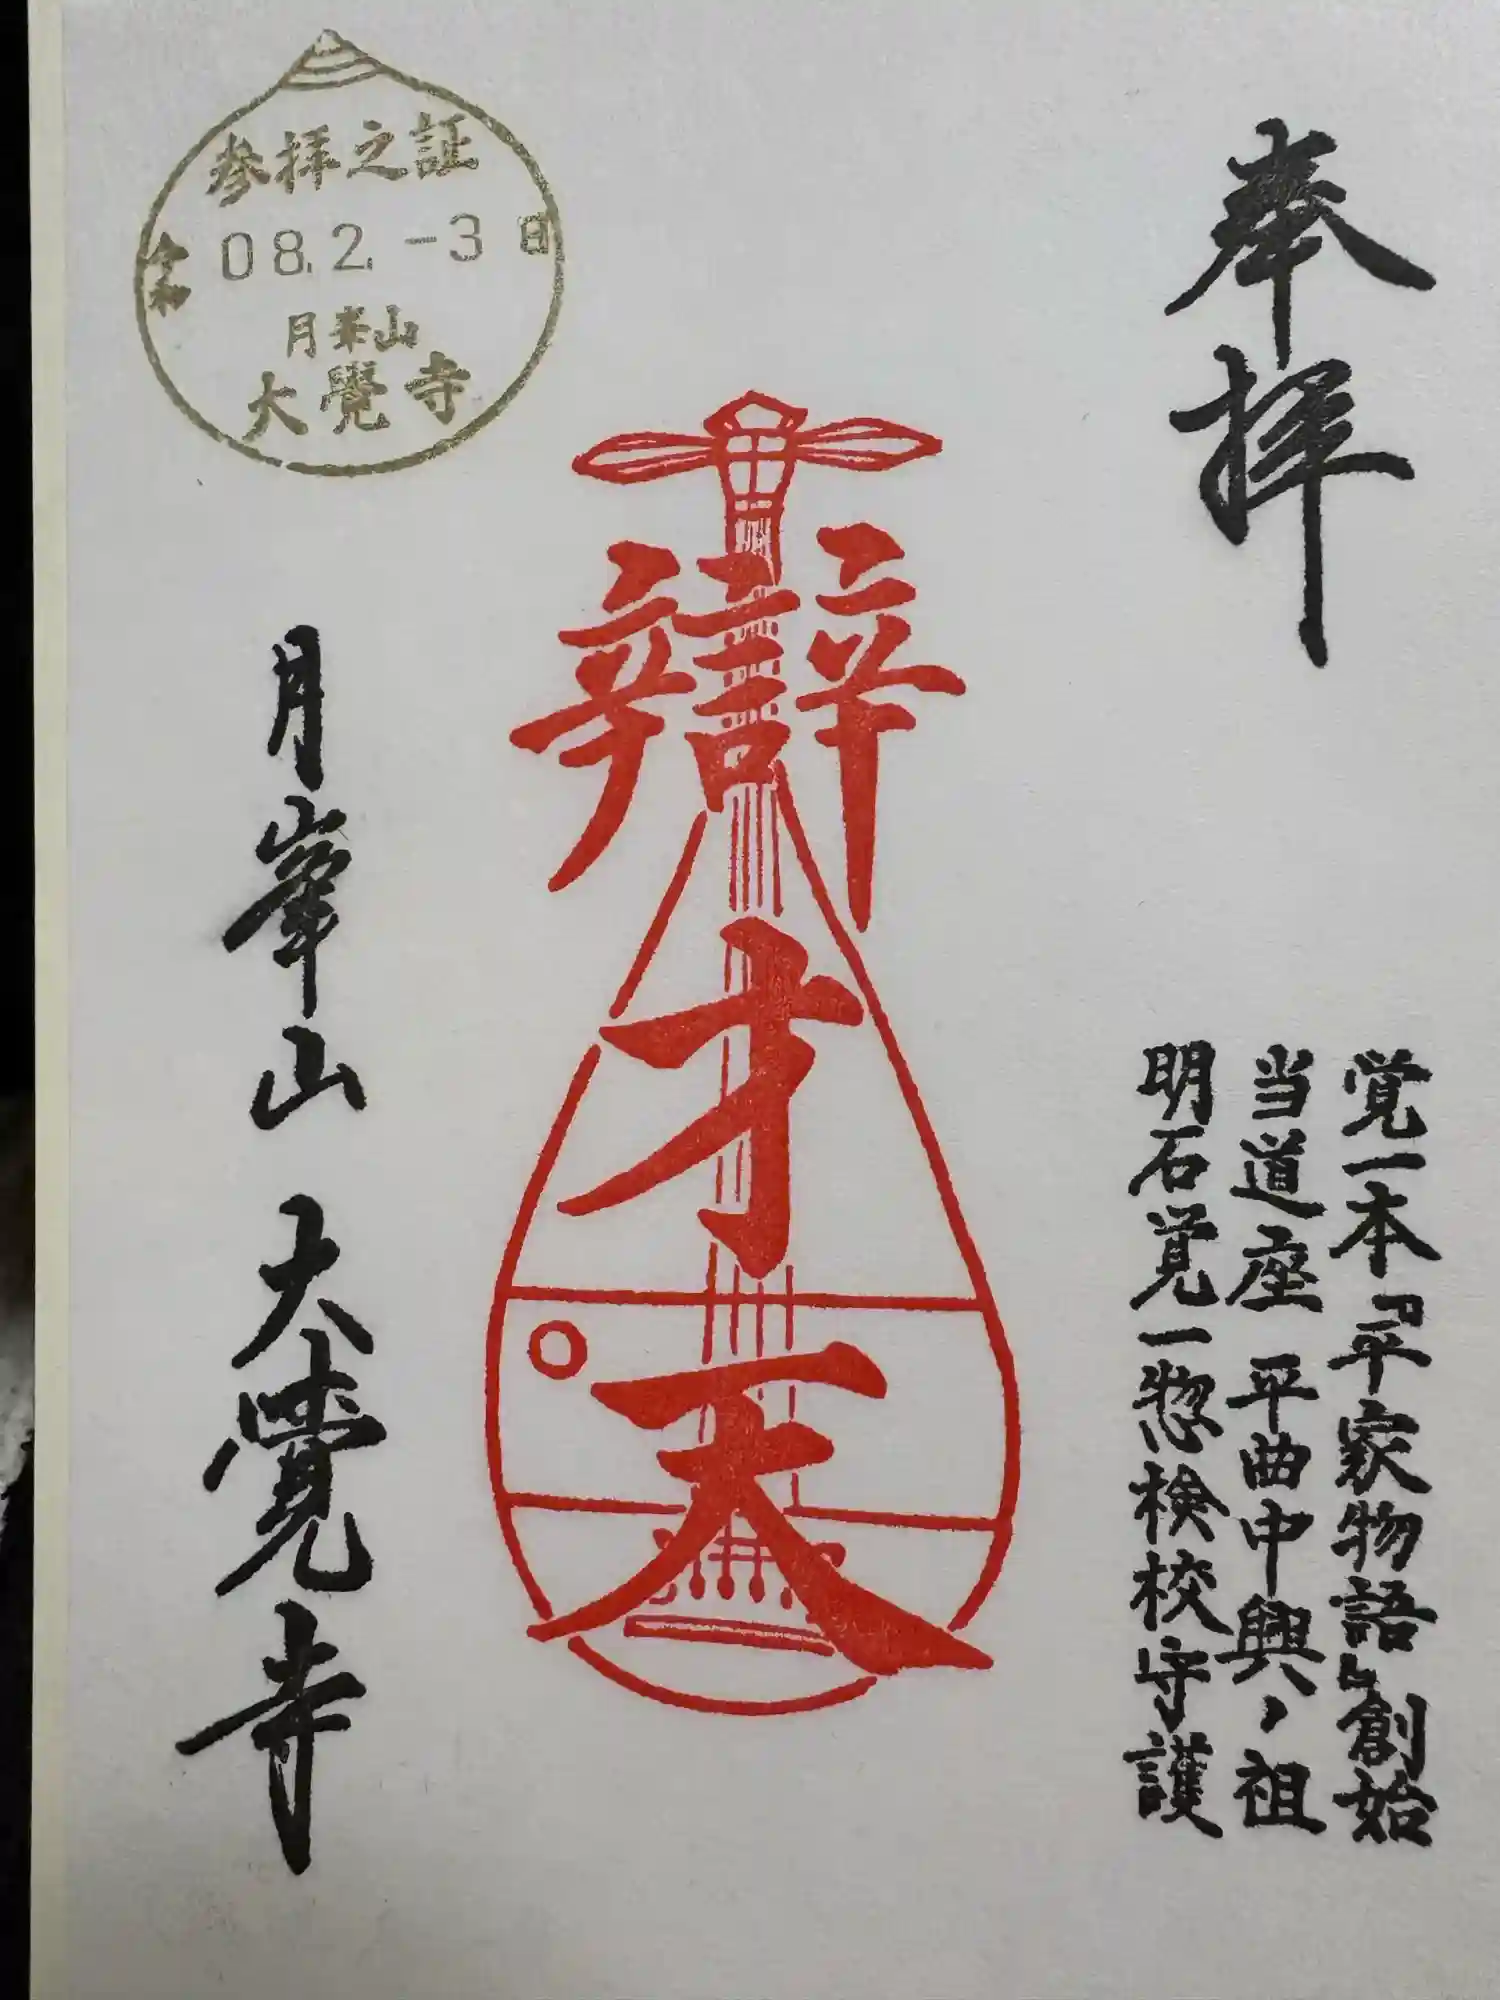 奉拝
覚一本『平家物語』創始
当道座 平曲中興ノ祖
明石覚一惣検校守護
辯才天
参拝之証
令和 08.2.-3日
月峯山
大覺寺
月峯山 大覺寺